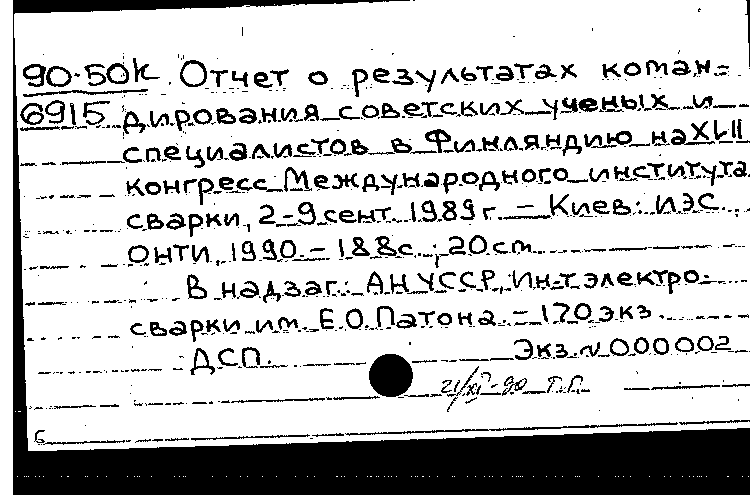 90-50к Отчет о результатах коман-
6915 дирования советских ученых и
специалистов в Финляндию на XLII
конгресс Международного института
сварки, 2-9 сент. 1989 г. - Киев: ИЭС.
ОНТИ, 1990. - 188с.; 20см
В надзаг.: АН УССР, Ин-т электро-
сварки им. Е.О. Патона. - 170 экз.
ДСП. Экз. N 000002
21/XI-90 Т.Г.
Б